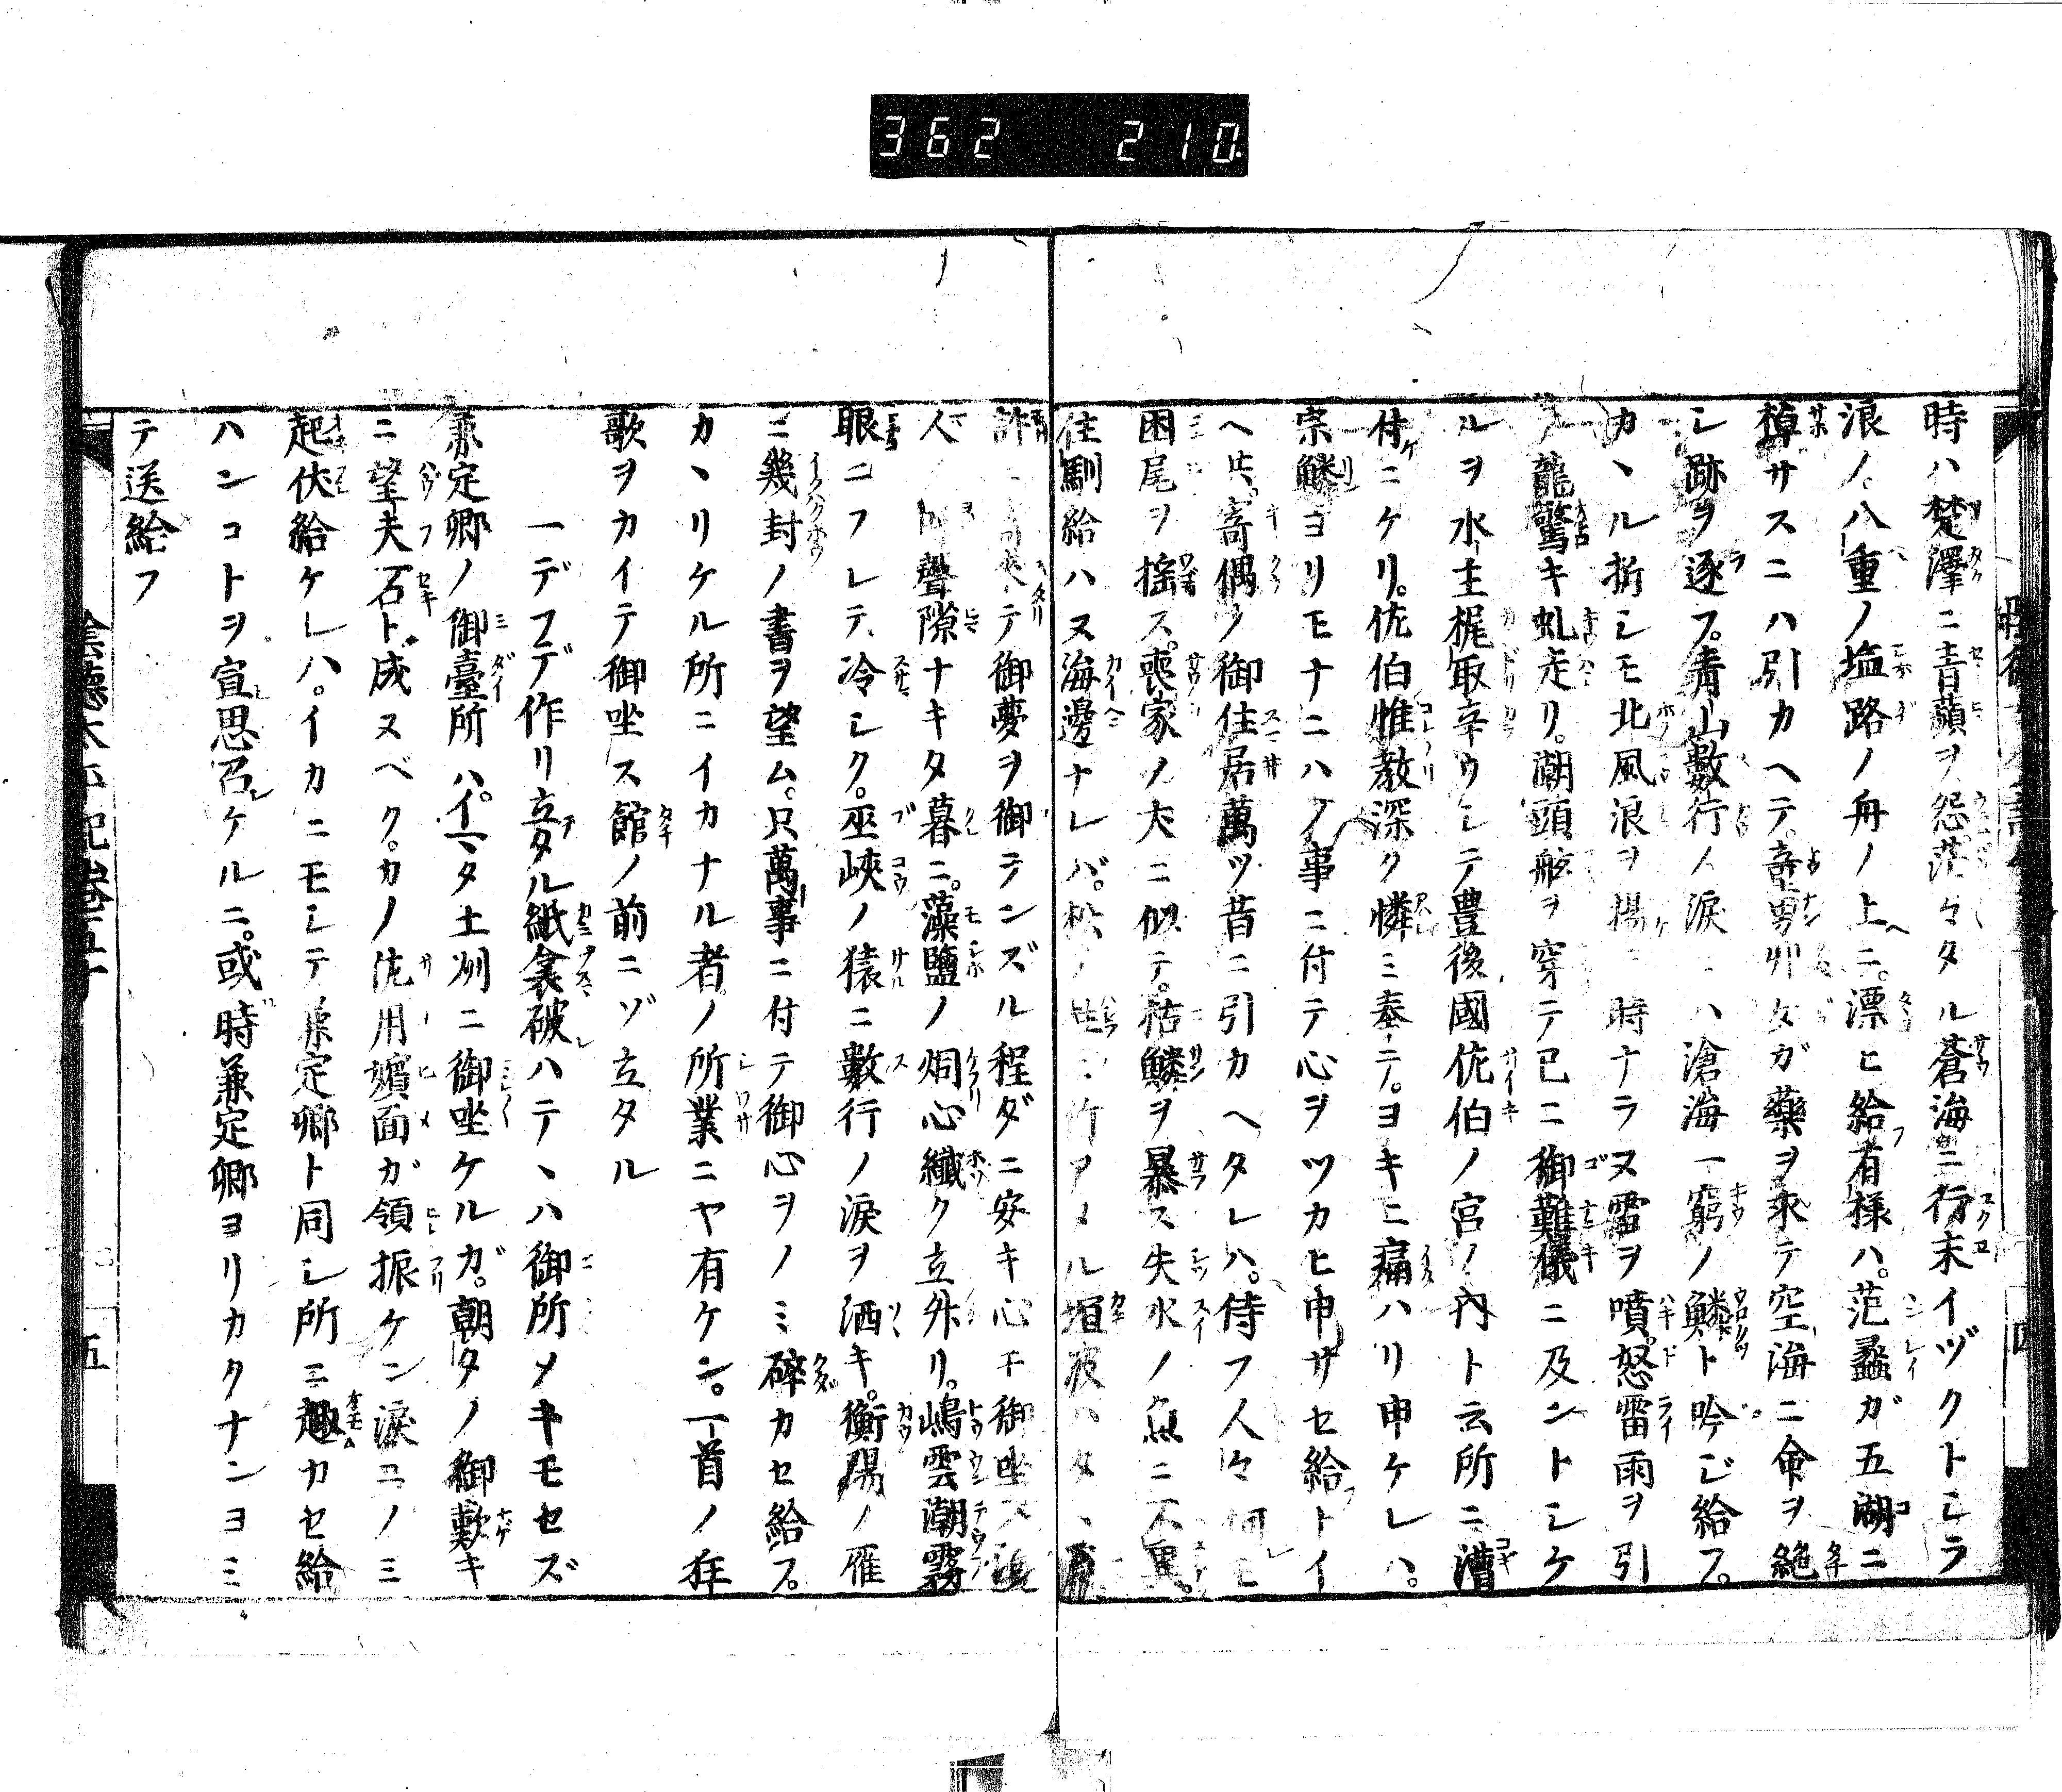 362 210.
時ハ楚澤ニ青蘋ヲ怨。茫々タル蒼海ニ行末イヅクトシラ
浪ノ八重ノ塩路ノ舟ノ上ニ。漂ヒ給フ有様ハ。范蠡ガ五湖ニ
棹サスニハ引カヘテ。童男丱女ガ藥ヲ求テ空海ニ命ヲ絶
シ跡ヲ逐フ。青山數行ノ涙ニハ滄海一窮ノ鱗ト吟ジ給フ。
カヽル折シモ北風浪ヲ揚ケ時ナラヌ雹ヲ噴。怒雷雨ヲ引
龍驚キ虬走リ。潮頭舷ヲ穿テ已ニ御難儀ニ及ントシケ
ルヲ水主梶取辛ウシテ豊後國佐伯ノ宮ノ内ト云所ニ漕
付ニケリ。佐伯惟教深ク憐ミ奉ニ。ヨキニ痛ハリ申ケレハ。
宗麟ヨリモナニハノ事ニ付テ心ヲツカヒ申サセ給フトイ
ヘ共。寄偶ノ御住居萬ツ昔ニ引カヘタレハ。侍フ人々何レモ
困尾ヲ揺ス。喪家ノ犬ニ似テ。枯鱗ヲ暴ス失水ノ魚ニ不異。
住馴給ハヌ海邊ナレバ。松ノ ニ竹アメル垣波ハタヽ
テ御夢ヲ御ランズル程ダニ安キ心モ御坐ス
人 聲隙ナキタ暮ニ。藻鹽ノ烟心纖ク立外リ。嶋雲潮霧
眼ニフレテ冷シク。巫峽ノ猿ニ數行ノ涙ヲ洒キ。衡陽ノ雁
ニ幾封ノ書ヲ望ム。只萬事ニ付テ御心ヲノミ碎カセ給フ。
カヽリケル所ニイカナル者ノ所業ニヤ有ケン。一首ノ狂
歌ヲカイテ御坐ス館ノ前ニゾ立タル
一デフデ作リ立タル紙衾破ハテヽハ御所メキモセズ
兼定卿ノ御臺所ハ。イマタ土州ニ御坐ケルガ。朝タノ御歎キ
ニ望夫石ト成ヌベク。カノ佐用嬪面ガ領振ケン涙ニノミ
起伏給ケレハ。イカニモシテ兼定卿ト同シ所ニ趣カセ給
ハンコトヲ宣思召ケルニ。或時兼定卿ヨリカクナンヨミ
テ送給フ
陰德太平記巻五十
五